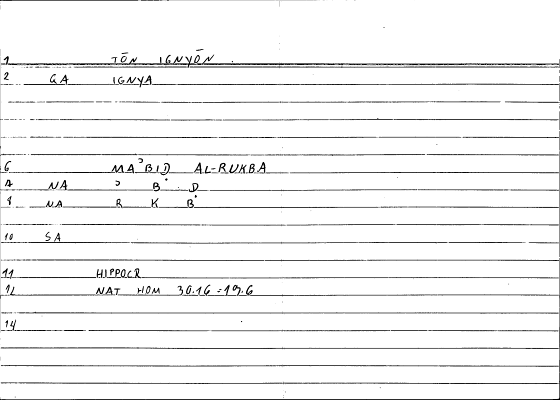 1 TŌN IGNYŌN
2 GA IGNYA
6 MAʾBIḌ AL-RUKBA
7 NA ʾ B Ḍ
8 NA R K B
10 SA
11 HIPPOCR
12 NAT HOM 30.16 = 19.6
14